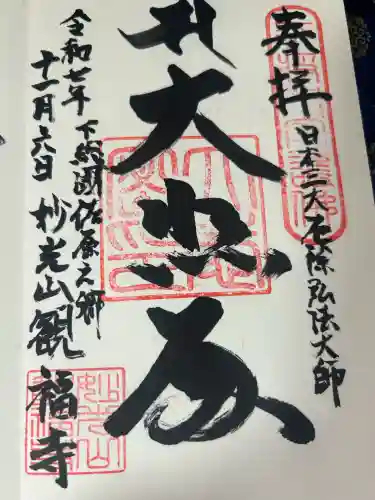 奉拝
日本三大厄除弘法大師
大悲殿
下総國佐原之郷
令和七年
十一月六日
妙光山観福寺